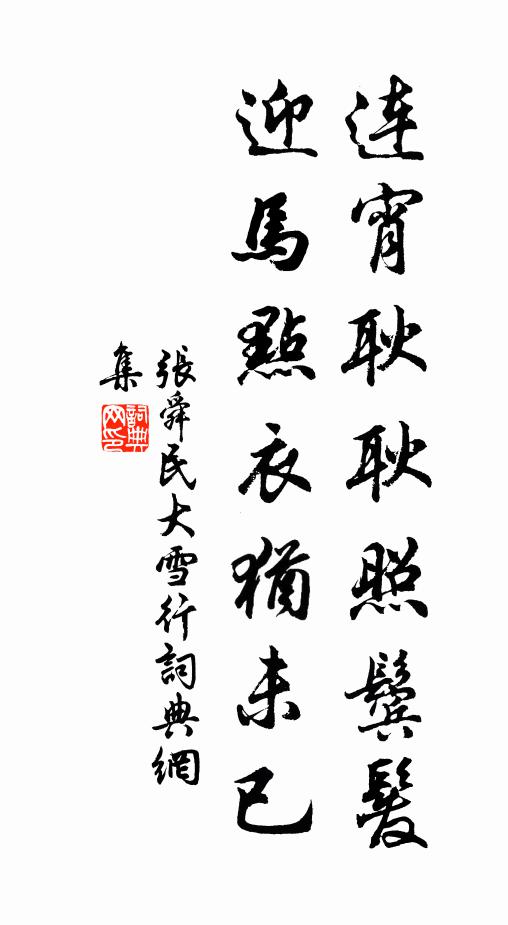 連宵耿耿照鬢髮
迎馬點衣猶未已
張舜民大雪行詞典網
集
詞典网印